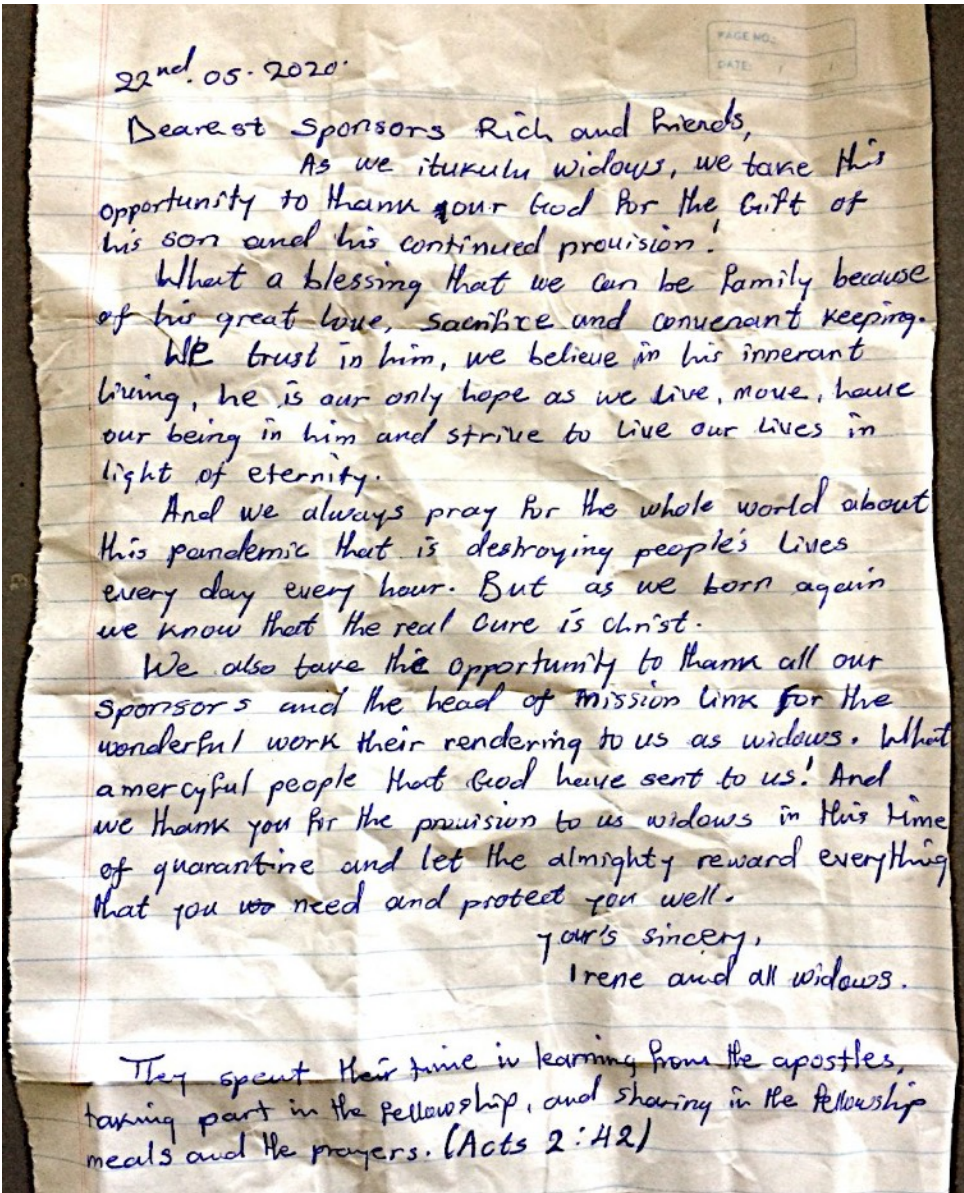 PAGE NO.:
DATE: / /
22nd. 05. 2020.
Dearest Sponsors Rich and friends,
As we itukulu widows, we take this
opportunity to thank our God for the Gift of
his son and his continued provision!
What a blessing that we can be family because
of his great love, sacrifice and convenant keeping.
We trust in him, we believe in his innerant
living, he is our only hope as we live, move, have
our being in him and strive to live our lives in
light of eternity.
And we always pray for the whole world about
this pandemic that is destroying people's lives
every day every hour. But as we born again
we know that the real cure is christ.
We also take the opportunity to thank all our
sponsors and the head of mission link for the
wonderful work their rendering to us as widows. What
a mercyful people that God have sent to us! And
we thank you for the provision to us widows in this time
of quarantine and let the almighty reward everything
that you need and protect you well.
your's sincery,
Irene and all widows.
They spent their time in learning from the apostles,
taking part in the fellowship, and sharing in the fellowship
meals and the prayers. (Acts 2:42)